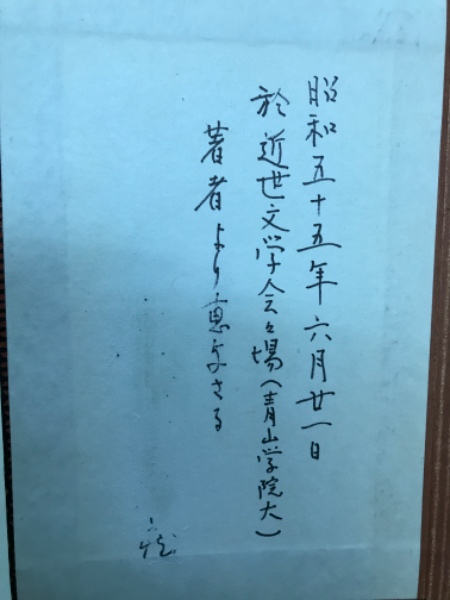 昭和五十五年六月廿一日
於近世文学会々場(青山学院大)
著者より恵与さる